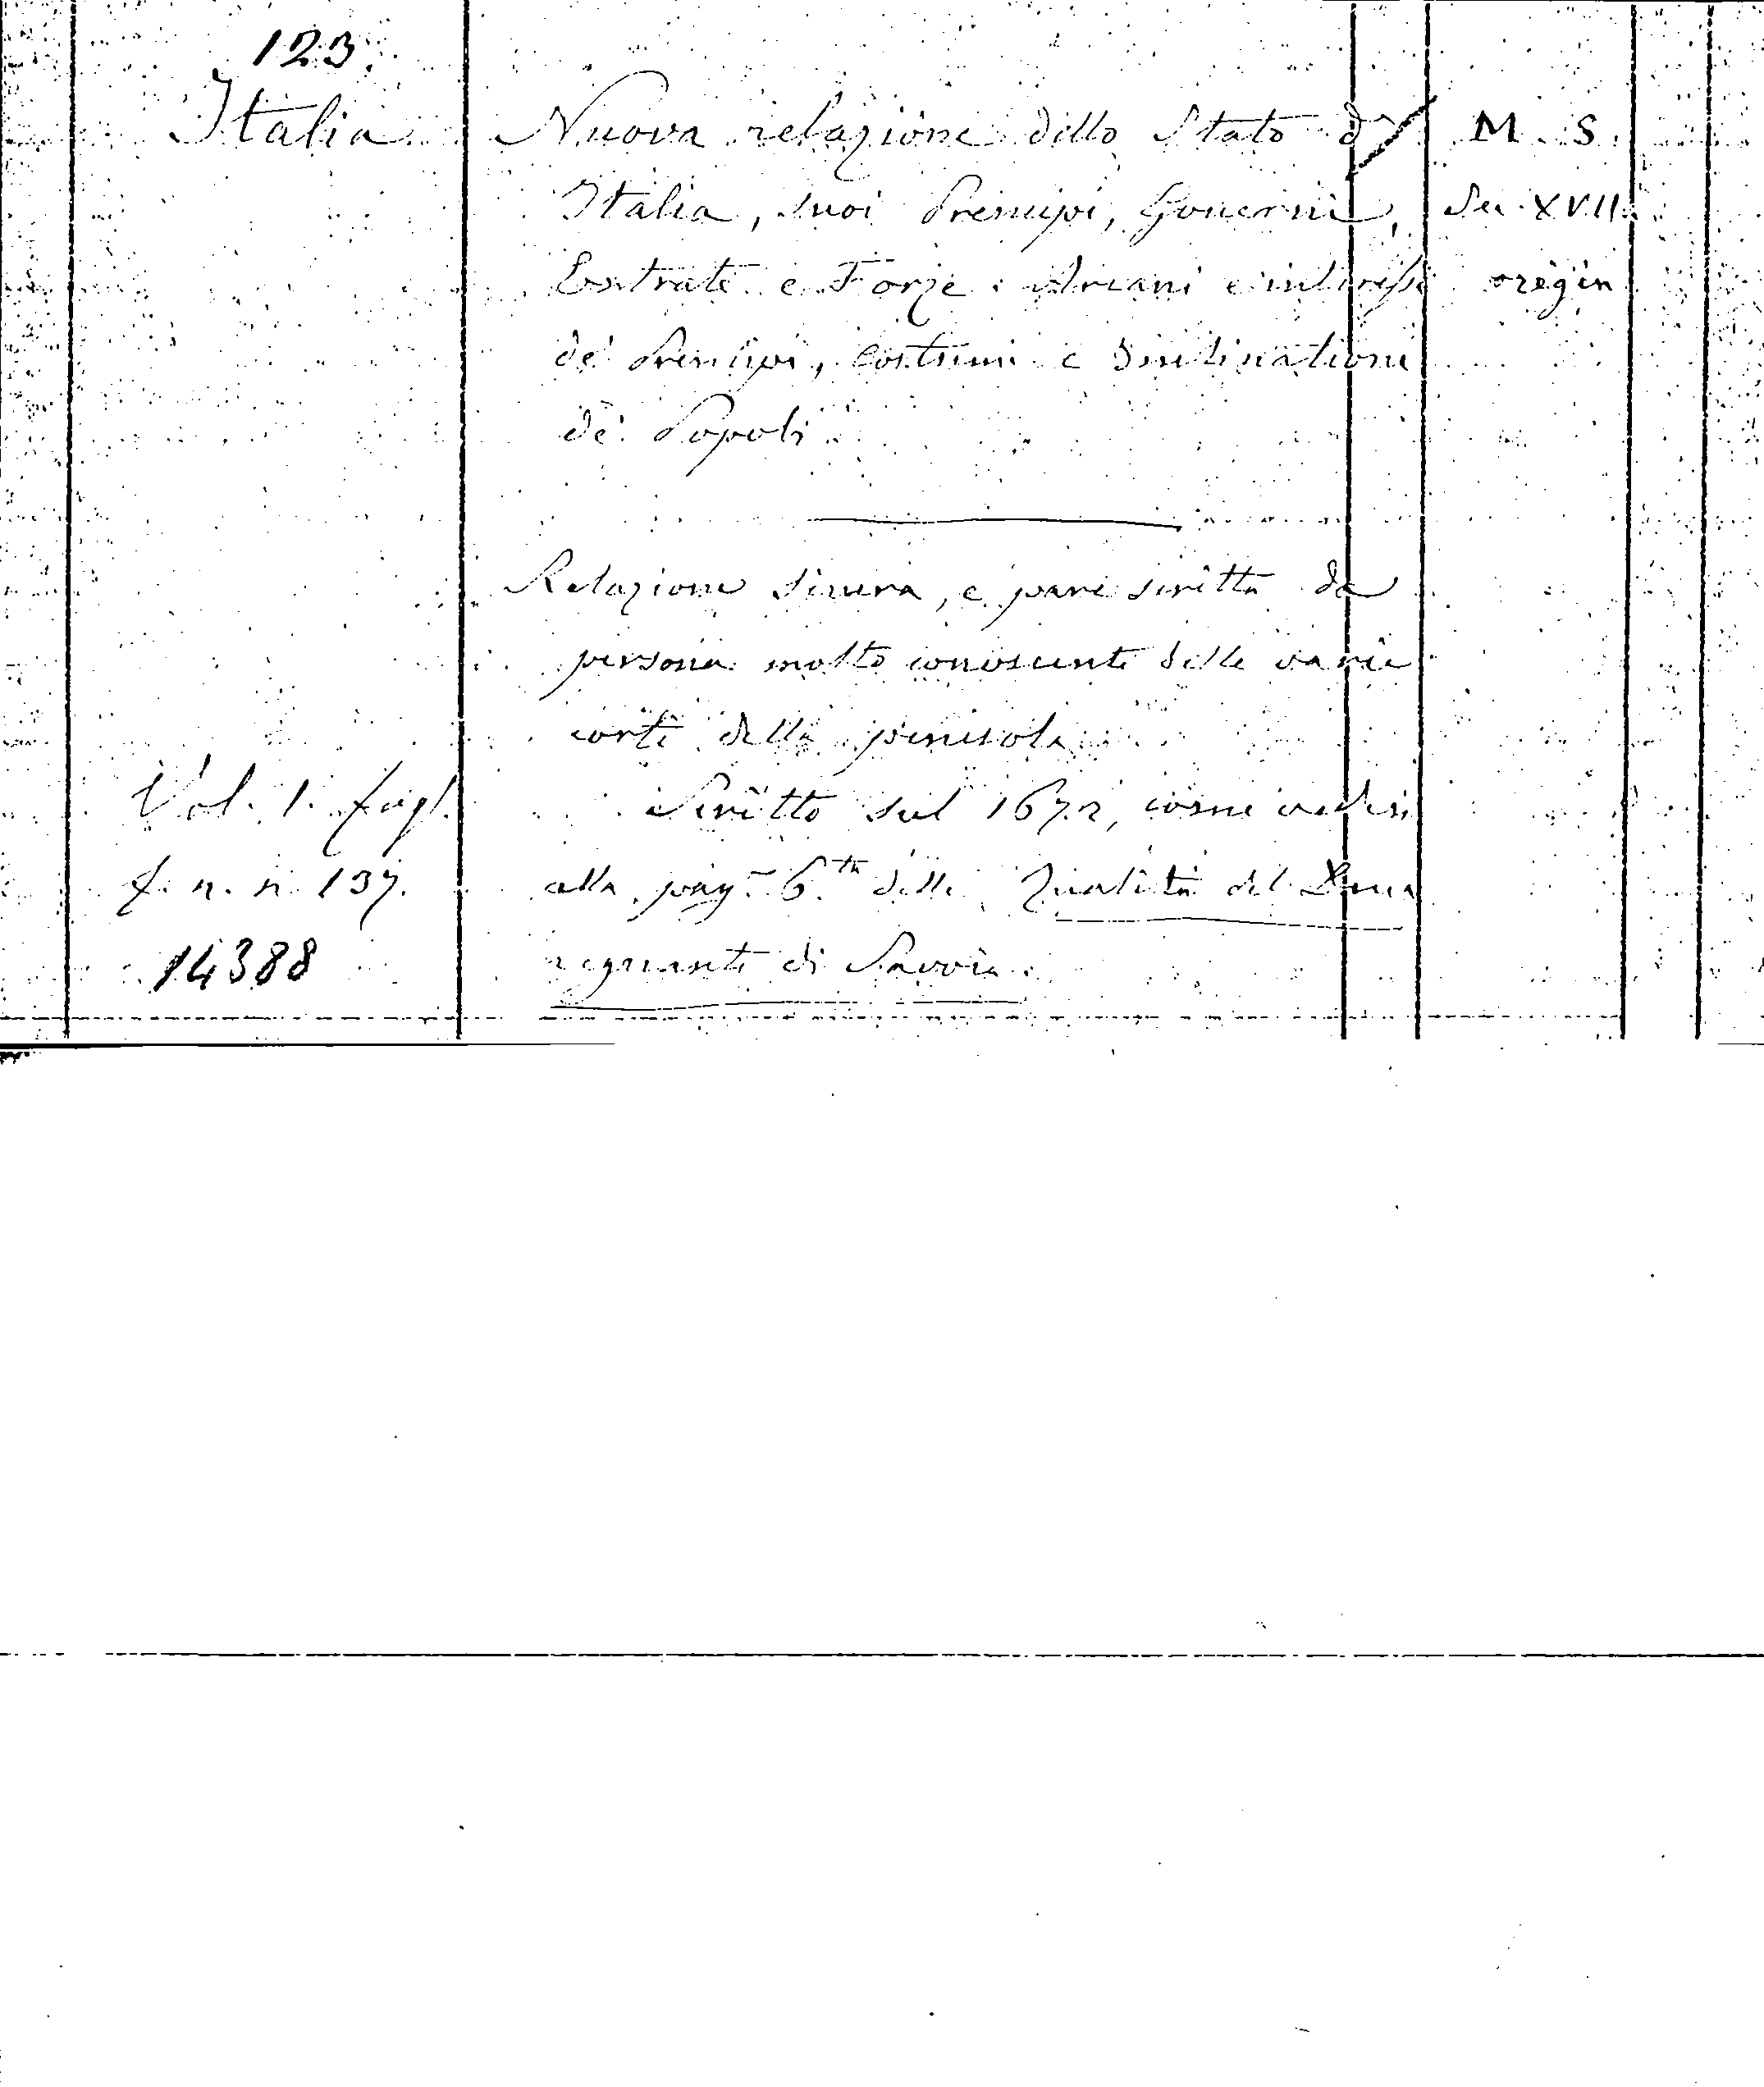 123
Italia
Nuova relazione dello Stato d'
Italia, suoi Principi, Gouerni,
Entrate e Forze: Arcani e interessi
de' Principi, costumi e Inclinationi
de' Popoli
M. S.
Sec. XVII.
origin
Relazione sincera, e pare scritta da
persona molto conoscente delle varie
corti della penisola
Scritto sul 1672, come vedesi
alla pag. 6.ta delle Qualità del Duca
regnante di Savoia.
Vol. 1. fogl.
f. n. n. 137.
14388